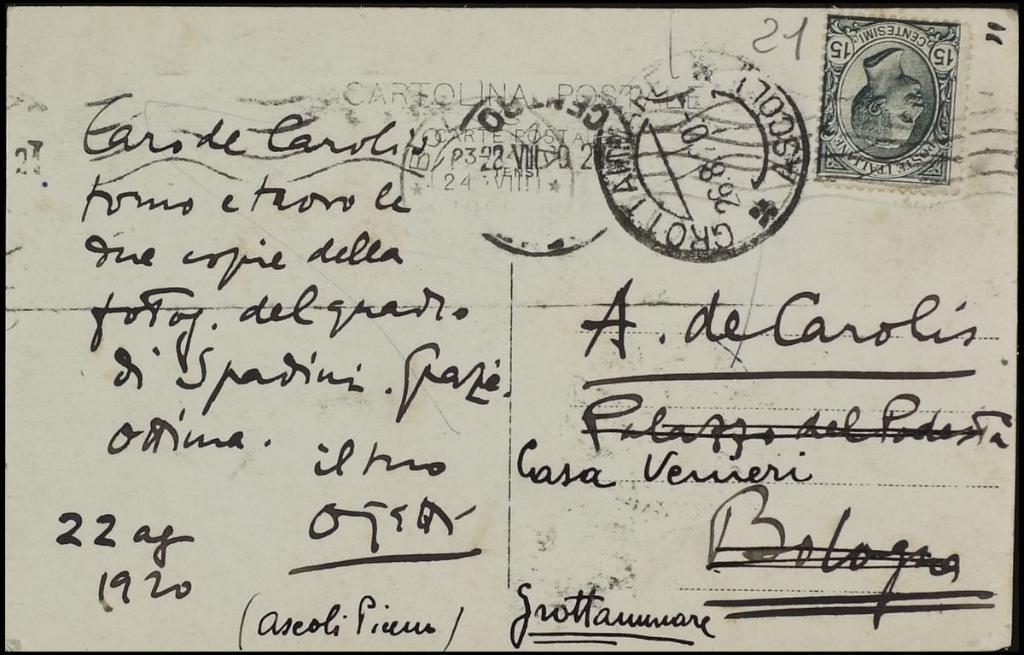 21
CARTOLINA POSTALE
CARTE POSTALE
15 CENTESIMI 15
POSTE ITALIANE
GROTTAMMARE
ASCOLI
26.8
CENTRO
24 VIII
Caro de Carolis
torno e trovo le
due copie della
fotog. del quadro
di Spadini. Grazie.
Ottima.
il tuo
Ojetti
22 ag
1920
A. de Carolis
Palazzo del Podestà
Casa Vennieri
Bologna
Grottammare
(Ascoli Piceno)